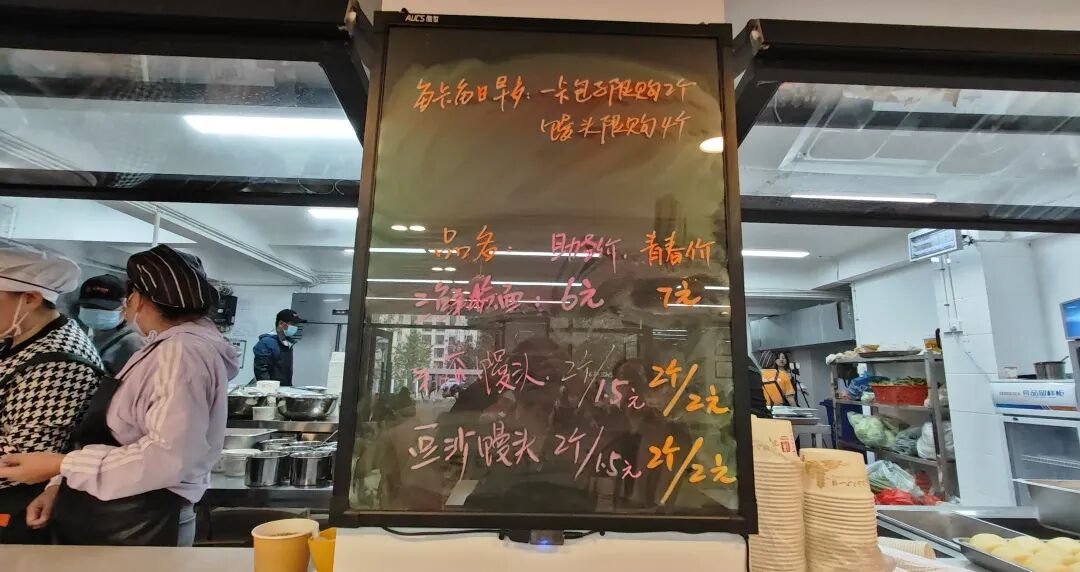 AUCS
每卡每日早乡：一卡包子限购2个
馒头限购4个
品名： 助老价. 青春价
三鲜汤面：6元 7元
馒头. 2个/1.5元 2个/2元
豆沙馒头 2个/1.5元 2个/2元
食品留样柜